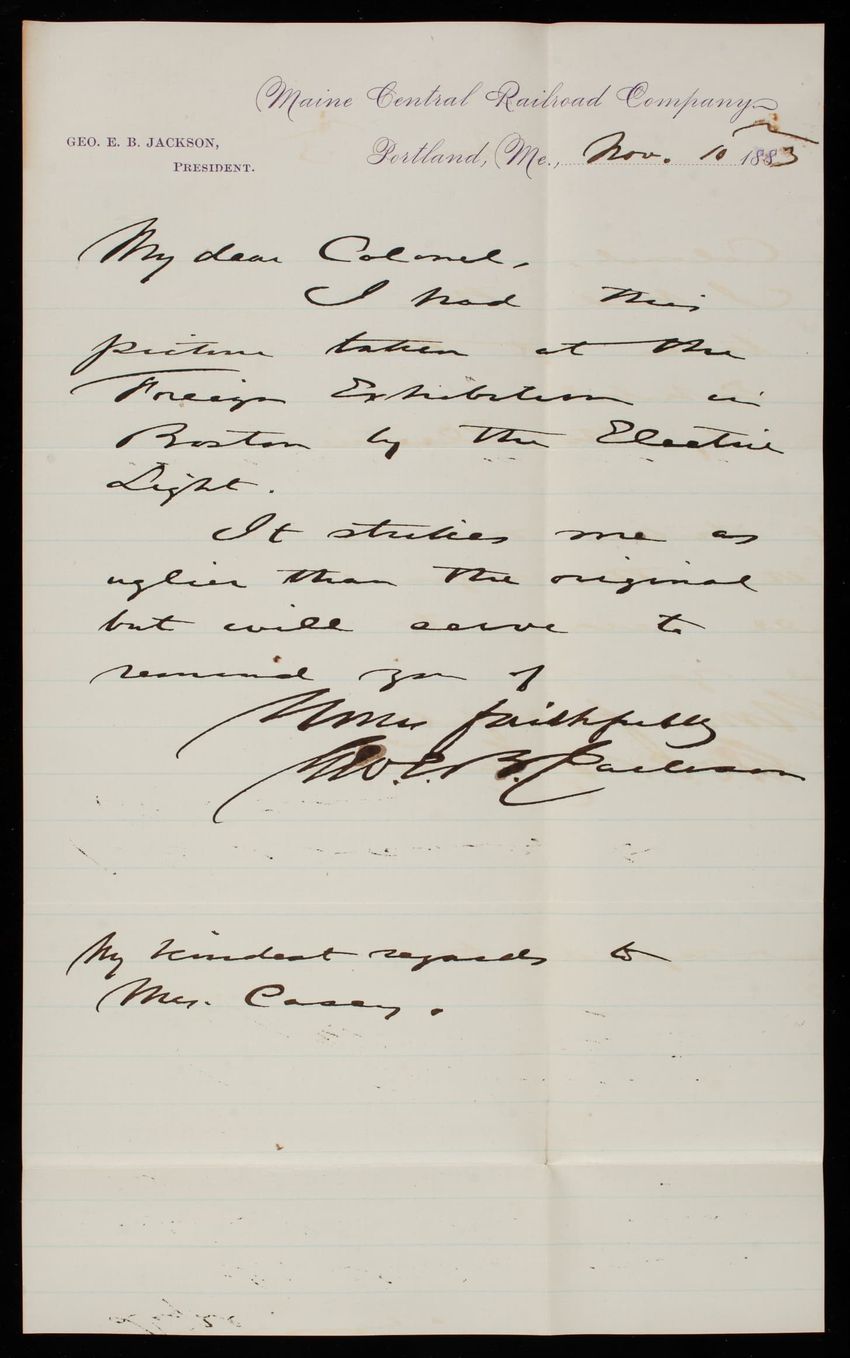 Maine Central Railroad Company
GEO. E. B. JACKSON,
PRESIDENT.
Portland, Me., Nov. 10 1883
My dear Colonel,
I had this
picture taken at the
Foreign Exhibition in
Boston by the Electric
Light.
It strikes me as
uglier than the original
but will serve to
remind you of
Yours faithfully
Geo. E. B. Jackson
My kindest regards to
Mrs. Casey.